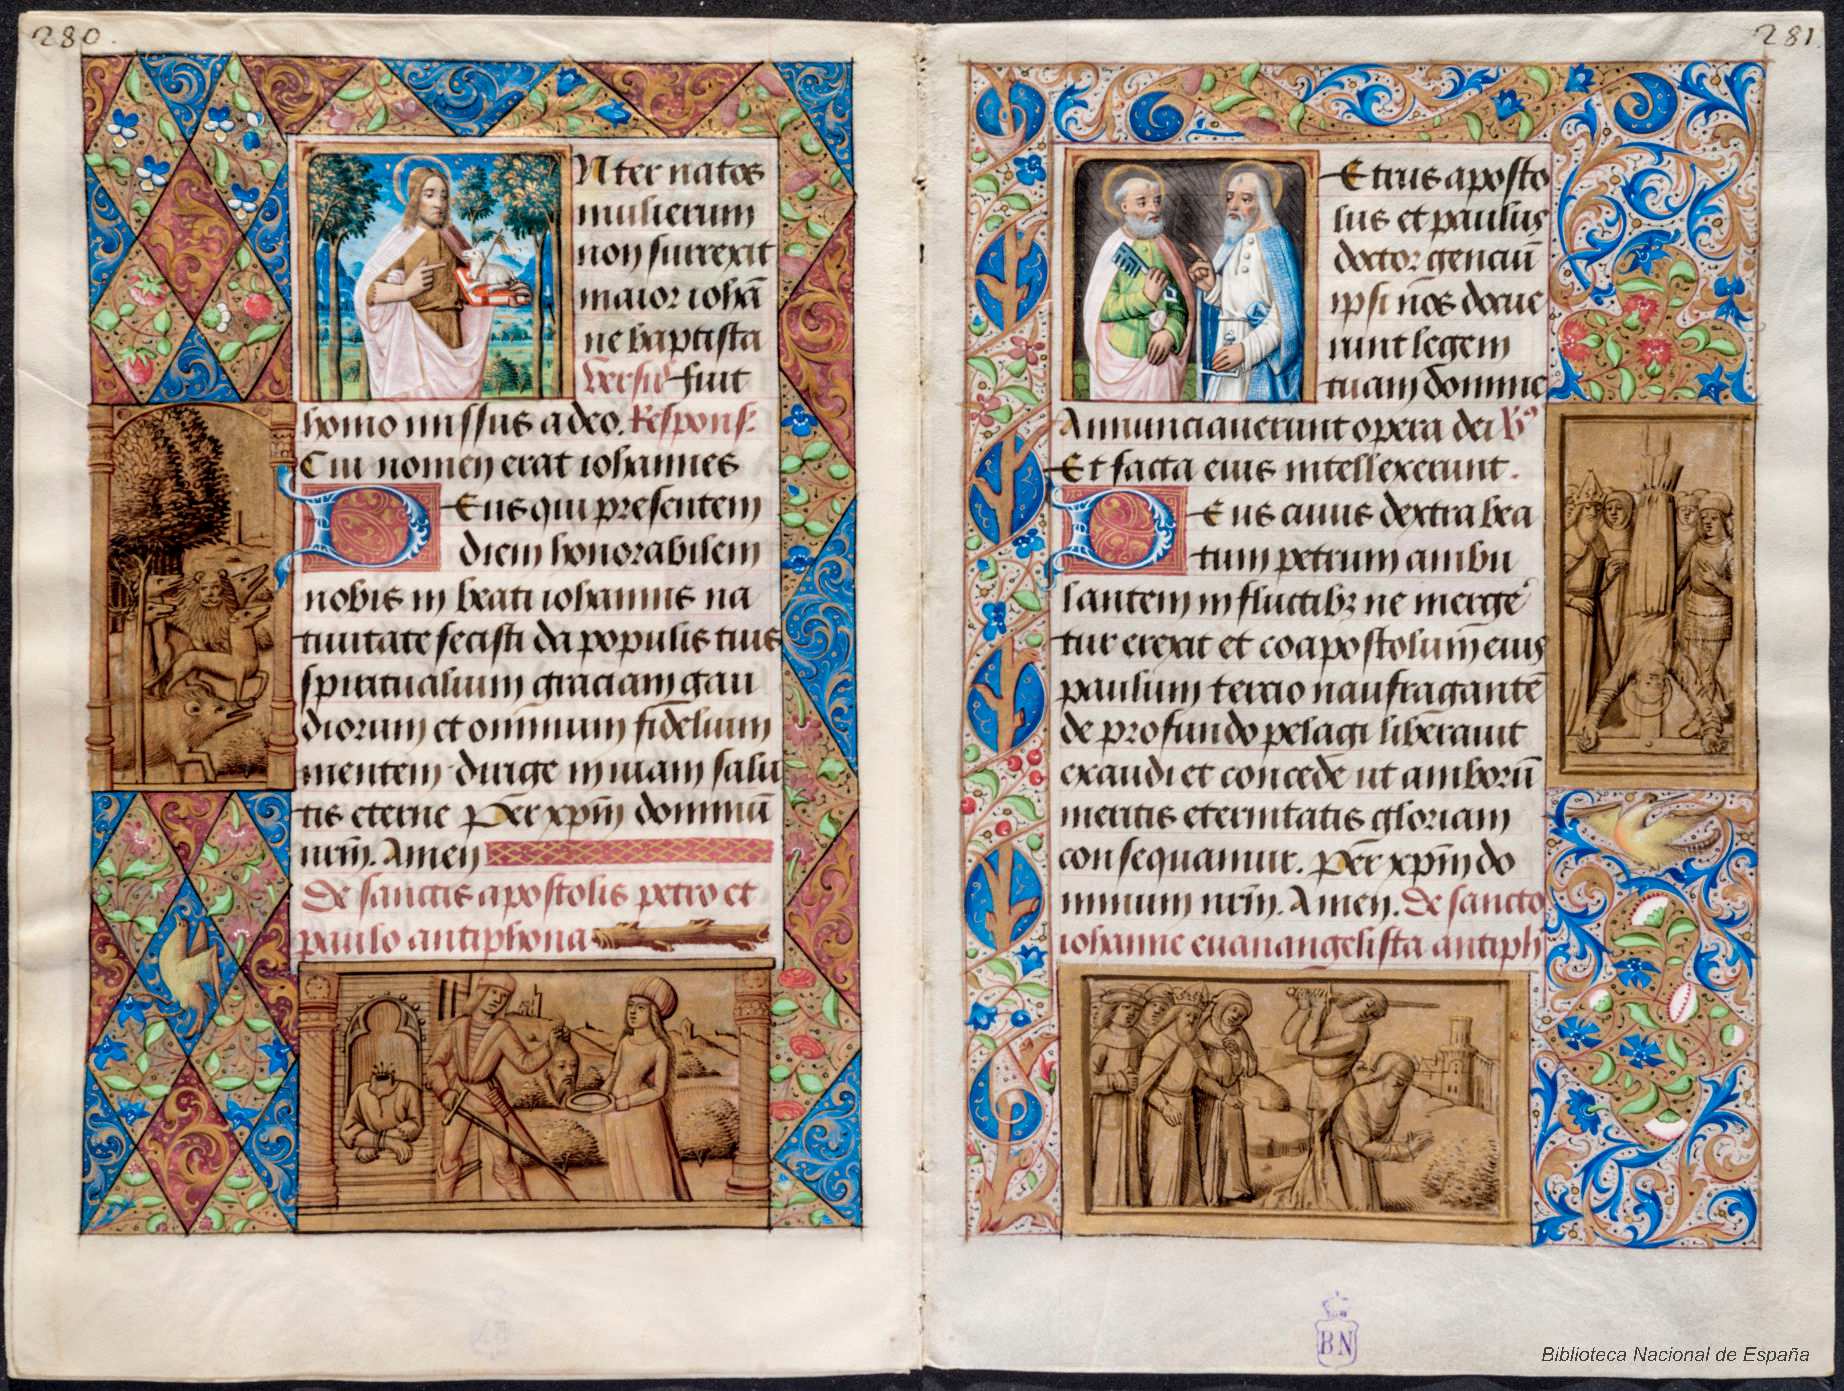 280.
Nter natos
mulierum
non surrexit
maior iohā
ne baptista
Versus fuit
homo missus a deo. Respons.
Cui nomen erat iohannes
Deus qui presentem
diem honorabilem
nobis in beati iohannis na
tiuitate fecisti da populis tuis
spiritualium graciam gau
diorum et omnium fidelium
mentem dirige in uiam salu
tis eterne Per xpm̄ dominū
nrm̄. Amen
De sanctis apostolis petro et
paulo antiphona
281.
Etrus aposto
lus et paulus
doctor genciū
ipsi nos docue
runt legem
tuam domine
Annunciauerunt opera dei R̄o
Et facta eius intellexerunt.
Deus cuius dextra bea
tum petrum ambu
lantem in fluctibꝫ ne merge
tur erexit et coapostolum̄ eius
paulum tercio naufragantē
de profundo pelagi liberauit
exaudi et concede ut amborū
meritis eternitatis gloriam
consequamur. Per xpm̄ do
minum nrm̄. Amen. De sancto
iohanne euanangelista antiph
BN
Biblioteca Nacional de España